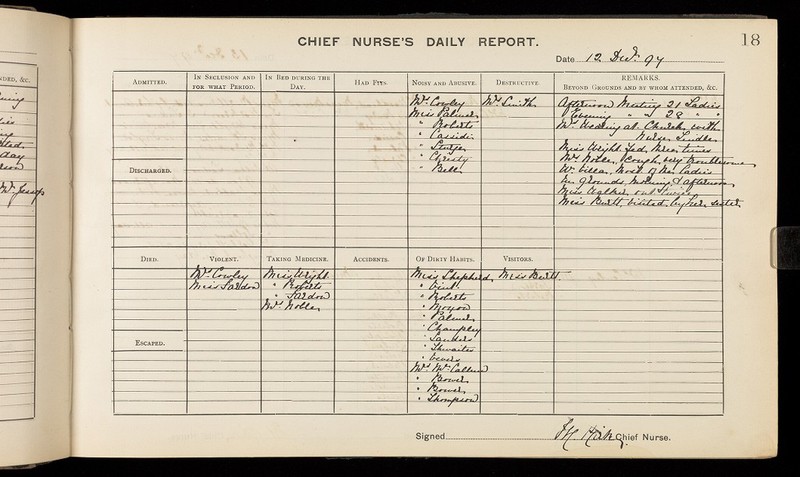 CHIEF NURSE'S DAILY REPORT.
18
Date 12. Dec: 97
NDED, &C.
ADMITTED.
IN SECLUSION AND FOR WHAT PERIOD.
IN BED DURING THE DAY.
HAD FITS.
NOISY AND ABUSIVE.
DESTRUCTIVE.
REMARKS.
BEYOND GROUNDS AND BY WHOM ATTENDED, &C.
Mrs Cowley
Miss Palmer
" Roberts
" Cassidi
" Sturge
" Christy
" Bell
Mrs Smith
Afternoon Meeting 21 Ladies
Evening " " 28 "
at Church with
Nurse
Miss Wright fed three times
Mrs Noble, Cough very troublesome
W. Villa, Most of the Ladies
in grounds, Morning & afternoon
Miss Walker out twice
Miss Burtt, visited by her sister
DISCHARGED.
DIED.
VIOLENT.
TAKING MEDICINE.
ACCIDENTS.
OF DIRTY HABITS.
VISITORS.
Mrs Cowley
Miss Sardon
Miss Wright
" Roberts
" Sardon
Mrs Noble
Miss Shepherd
"
" Roberts
" Moxon
" Palmer
" Champley
" Sanders
" Thwaites
" Bevers
Mrs McCallum
" Bower
"
" Thompson
Miss Burtt
ESCAPED.
Signed Chief Nurse.